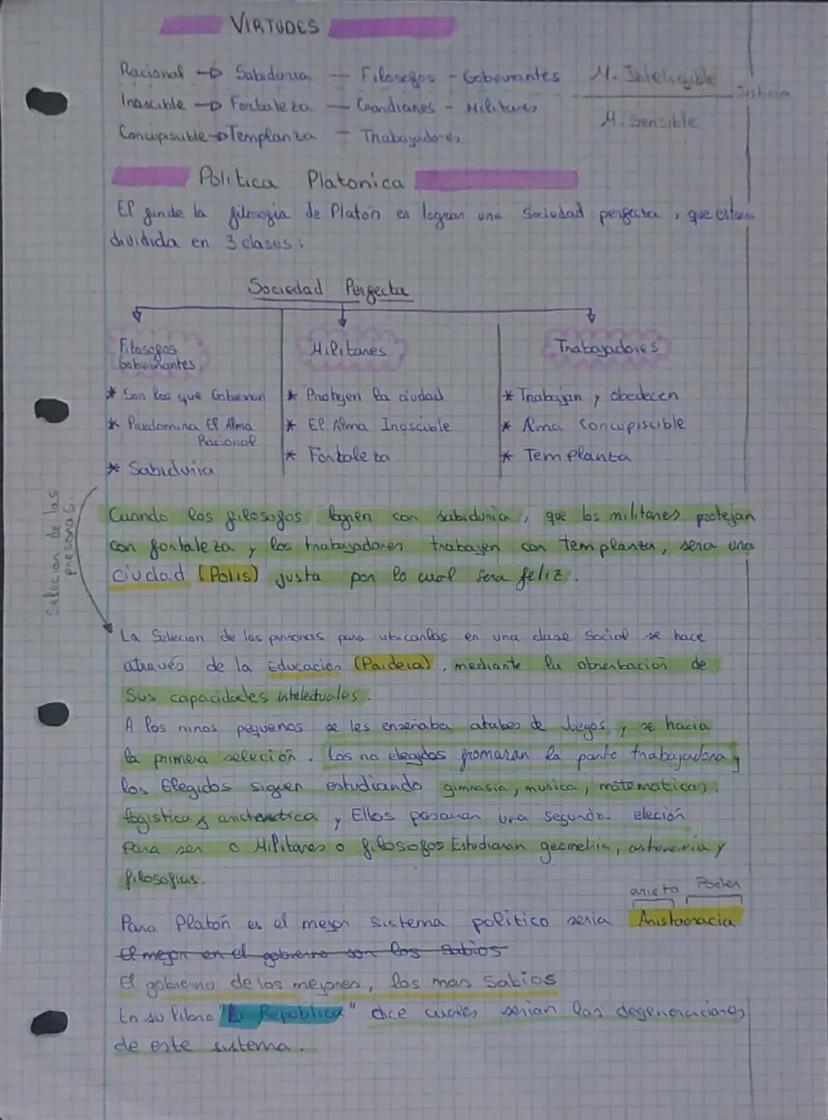 VIRTUDES
Racional → Sabiduria — Filosofos - Gobernantes
Irascible → Fortaleza — Guardianes - Militares
Concupiscible → Templanza — Trabajadores
M. Inteligible
M. Sensible
Justicia
Politica Platonica
El fin de la filosofia de Platón es lograr una Sociedad perfecta, que estara
dividida en 3 clases:
Sociedad Perfecta
Filosofos
Gobernantes
* Son los que Gobiernan
* Predomina El Alma
Racional
* Sabiduria
Militares
* Protejen la ciudad
* El Alma Irascible
* Fortaleza
Trabajadores
* Trabajan y obedecen
* Alma Concupiscible
* Templanta
Selecion de las
presonas.
Cuando los filosofos logren con sabiduria, que los militares protejan
con fortaleza y los trabajadores trabajen con templanza, sera una
Ciudad (Polis) justa por lo cual sera feliz.
La Selecion de las personas para ubicarlas en una clase Social se hace
através de la Educacion (Paideia), mediante la obserbación de
Sus capacidades intelectuales.
A los ninos pequenos se les enseñaba atabes de Juegos, y se hacia
la primera seleción. Los no elegidos fromaran la parte trabajadora y
los Elegidos siguen estudiando gimnasia, musica, matematicas,
logistica y , Ellos pasaran una segunda eleción
Para ser o Militares o filosofos Estudiaran geometria, y
filosofias.
aristo Poder
Para Platón es el mejor sistema politico seria Aristocracia
El mejor en el gobierno son los Sabios
El gobierno de los mejores, los mas Sabios
En su libro "La Republica" dice cuales serian las degeneraciones
de este sistema.